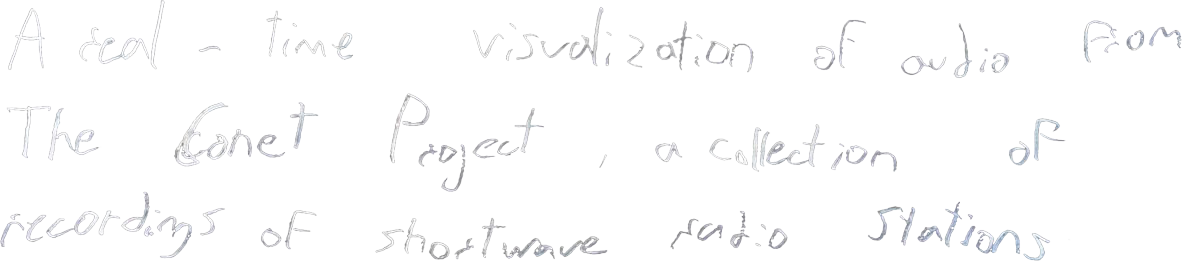 A real-time visualization of audio from
The Conet Project, a collection of
recordings of shortwave radio stations